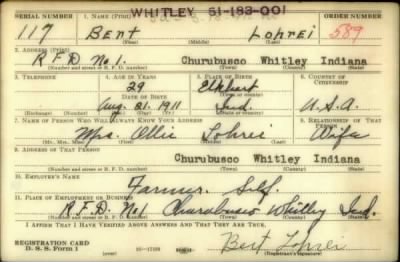 WHITLEY 51-183-001
SERIAL NUMBER 1. NAME (Print) ORDER NUMBER
117 Bert Lohrei 589
(First) (Middle) (Last)
2. ADDRESS (Print)
R.F.D No1. Churubusco Whitley Indiana
(Number and street or R. F. D. number) (Town) (County) (State)
3. TELEPHONE 4. AGE IN YEARS 5. PLACE OF BIRTH 6. COUNTRY OF CITIZENSHIP
29 Elkhart
DATE OF BIRTH (Town or county)
Aug. 21. 1911 Ind. U.S.A.
(Exchange) (Number) (Mo.) (Day) (Yr.) (State or country)
7. NAME OF PERSON WHO WILL ALWAYS KNOW YOUR ADDRESS 8. RELATIONSHIP OF THAT PERSON
Mrs. Ollie Lohrei Wife
(Mr., Mrs., Miss) (First) (Middle) (Last)
9. ADDRESS OF THAT PERSON
Churubusco Whitley Indiana
(Number and street or R. F. D. number) (Town) (County) (State)
10. EMPLOYER'S NAME
Farmer. Self.
11. PLACE OF EMPLOYMENT OR BUSINESS
R.F.D. No1 Churubusco Whitley Ind.
(Number and street or R. F. D. number) (Town) (County) (State)
I AFFIRM THAT I HAVE VERIFIED ABOVE ANSWERS AND THAT THEY ARE TRUE.
REGISTRATION CARD
D. S. S. Form 1 16-17105 Bert Lohrei
(Registrant's signature)